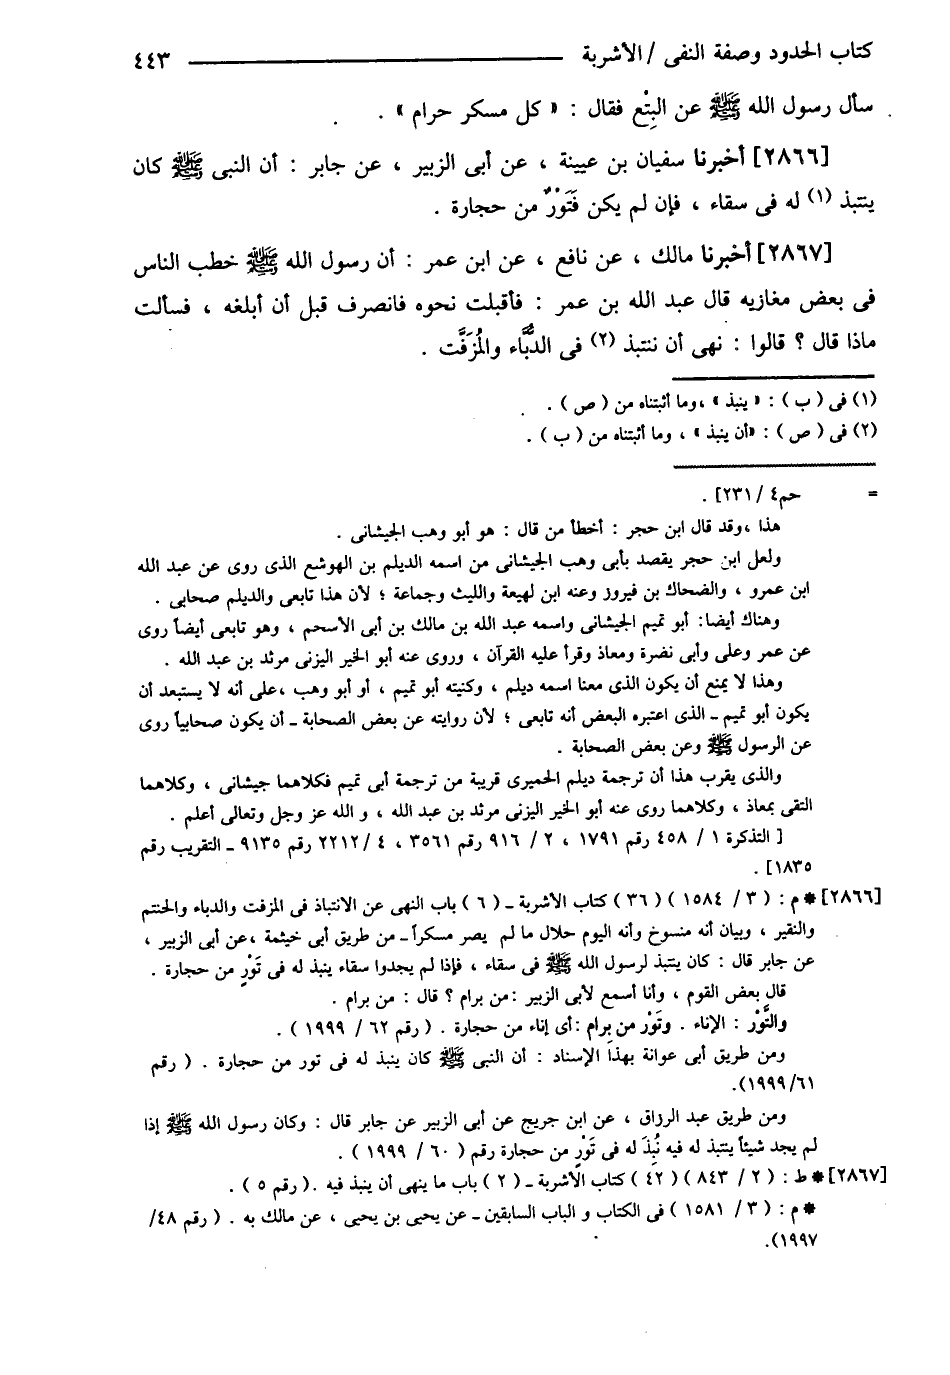 كتاب الحدود وصفة النفى / الأشربة ــــــــــــ ٤٤٣
سأل رسول الله ﷺ عن البِتْع فقال : « كل مسكر حرام » .
[٢٨٦٦] أخبرنا سفيان بن عيينة ، عن أبى الزبير ، عن جابر : أن النبى ﷺ كان
ينتبذ (١) له فى سقاء ، فإن لم يكن فَتَوْرٌ من حجارة .
[٢٨٦٧] أخبرنا مالك ، عن نافع ، عن ابن عمر : أن رسول الله ﷺ خطب الناس
فى بعض مغازيه قال عبد الله بن عمر : فأقبلت نحوه فانصرف قبل أن أبلغه ، فسألت
ماذا قال ؟ قالوا : نهى أن ننتبذ (٢) فى الدُّبَّاء والمُزَفَّت .
(١) فى ( ب ) : « ينبذ » ،وما أثبتناه من ( ص ) .
(٢) فى ( ص ) : «أن ينبذ» ، وما أثبتناه من ( ب ) .
= حم٤ / ٢٣١] .
هذا ،وقد قال ابن حجر : أخطأ من قال : هو أبو وهب الجيشانى .
ولعل ابن حجر يقصد بأبى وهب الجيشانى من اسمه الديلم بن الهوشع الذى روى عن عبد الله
ابن عمرو ، والضحاك بن فيروز وعنه ابن لهيعة والليث وجماعة ؛ لأن هذا تابعى والديلم صحابى .
وهناك أيضا: أبو تميم الجيشانى واسمه عبد الله بن مالك بن أبى الأسحم ، وهو تابعى أيضاً روى
عن عمر وعلى وأبى نضرة ومعاذ وقرأ عليه القرآن ، وروى عنه أبو الخير اليزنى مرثد بن عبد الله .
وهذا لا يمنع أن يكون الذى معنا اسمه ديلم ، وكنيته أبو تميم ، أو أبو وهب ،على أنه لا يستبعد أن
يكون أبو تميم ـ الذى اعتبره البعض أنه تابعى ؛ لأن روايته عن بعض الصحابة ـ أن يكون صحابياً روى
عن الرسول ﷺ وعن بعض الصحابة .
والذى يقرب هذا أن ترجمة ديلم الحميرى قريبة من ترجمة أبى تميم فكلاهما جيشانى ، وكلاهما
التقى بمعاذ ، وكلاهما روى عنه أبو الخير اليزنى مرثد بن عبد الله ، و الله عز وجل وتعالى أعلم .
[ التذكرة ١ / ٤٥٨ رقم ١٧٩١ ، ٢ / ٩١٦ رقم ٣٥٦١ ، ٤ / ٢٢١٢ رقم ٩١٣٥ ـ التقريب رقم
١٨٣٥] .
[٢٨٦٦] * م : ( ٣ / ١٥٨٤ ) ( ٣٦ ) كتاب الأشربة ـ ( ٦ ) باب النهى عن الانتباذ فى المزفت والدباء والحنتم
والنقير ، وبيان أنه منسوخ وأنه اليوم حلال ما لم يصر مسكراً ـ من طريق أبى خيثمة ،عن أبى الزبير ،
عن جابر قال : كان ينتبذ لرسول الله ﷺ فى سقاء ، فإذا لم يجدوا سقاء ينبذ له فى تَوْرٍ من حجارة .
قال بعض القوم ، وأنا أسمع لأبى الزبير :من برام ؟ قال : من برام .
والتَّوْر : الإناء . وتَوْر من بِرام :أى إناء من حجارة . ( رقم ٦٢ / ١٩٩٩ ) .
ومن طريق أبى عوانة بهذا الإسناد : أن النبى ﷺ كان ينبذ له فى تور من حجارة . ( رقم
٦١/ ١٩٩٩).
ومن طريق عبد الرزاق ، عن ابن جريج عن أبى الزبير عن جابر قال : وكان رسول الله ﷺ إذا
لم يجد شيئاً ينتبذ له فيه نُبِذَ له فى تَوْرٍ من حجارة رقم ( ٦٠ / ١٩٩٩ ) .
[٢٨٦٧] * ط : ( ٢ / ٨٤٣ ) ( ٤٢ ) كتاب الأشربة ـ ( ٢ ) باب ما ينهى أن ينبذ فيه .( رقم ٥ ) .
* م : ( ٣ / ١٥٨١ ) فى الكتاب و الباب السابقين ـ عن يحيى بن يحيى ، عن مالك به . ( رقم ٤٨/
١٩٩٧).